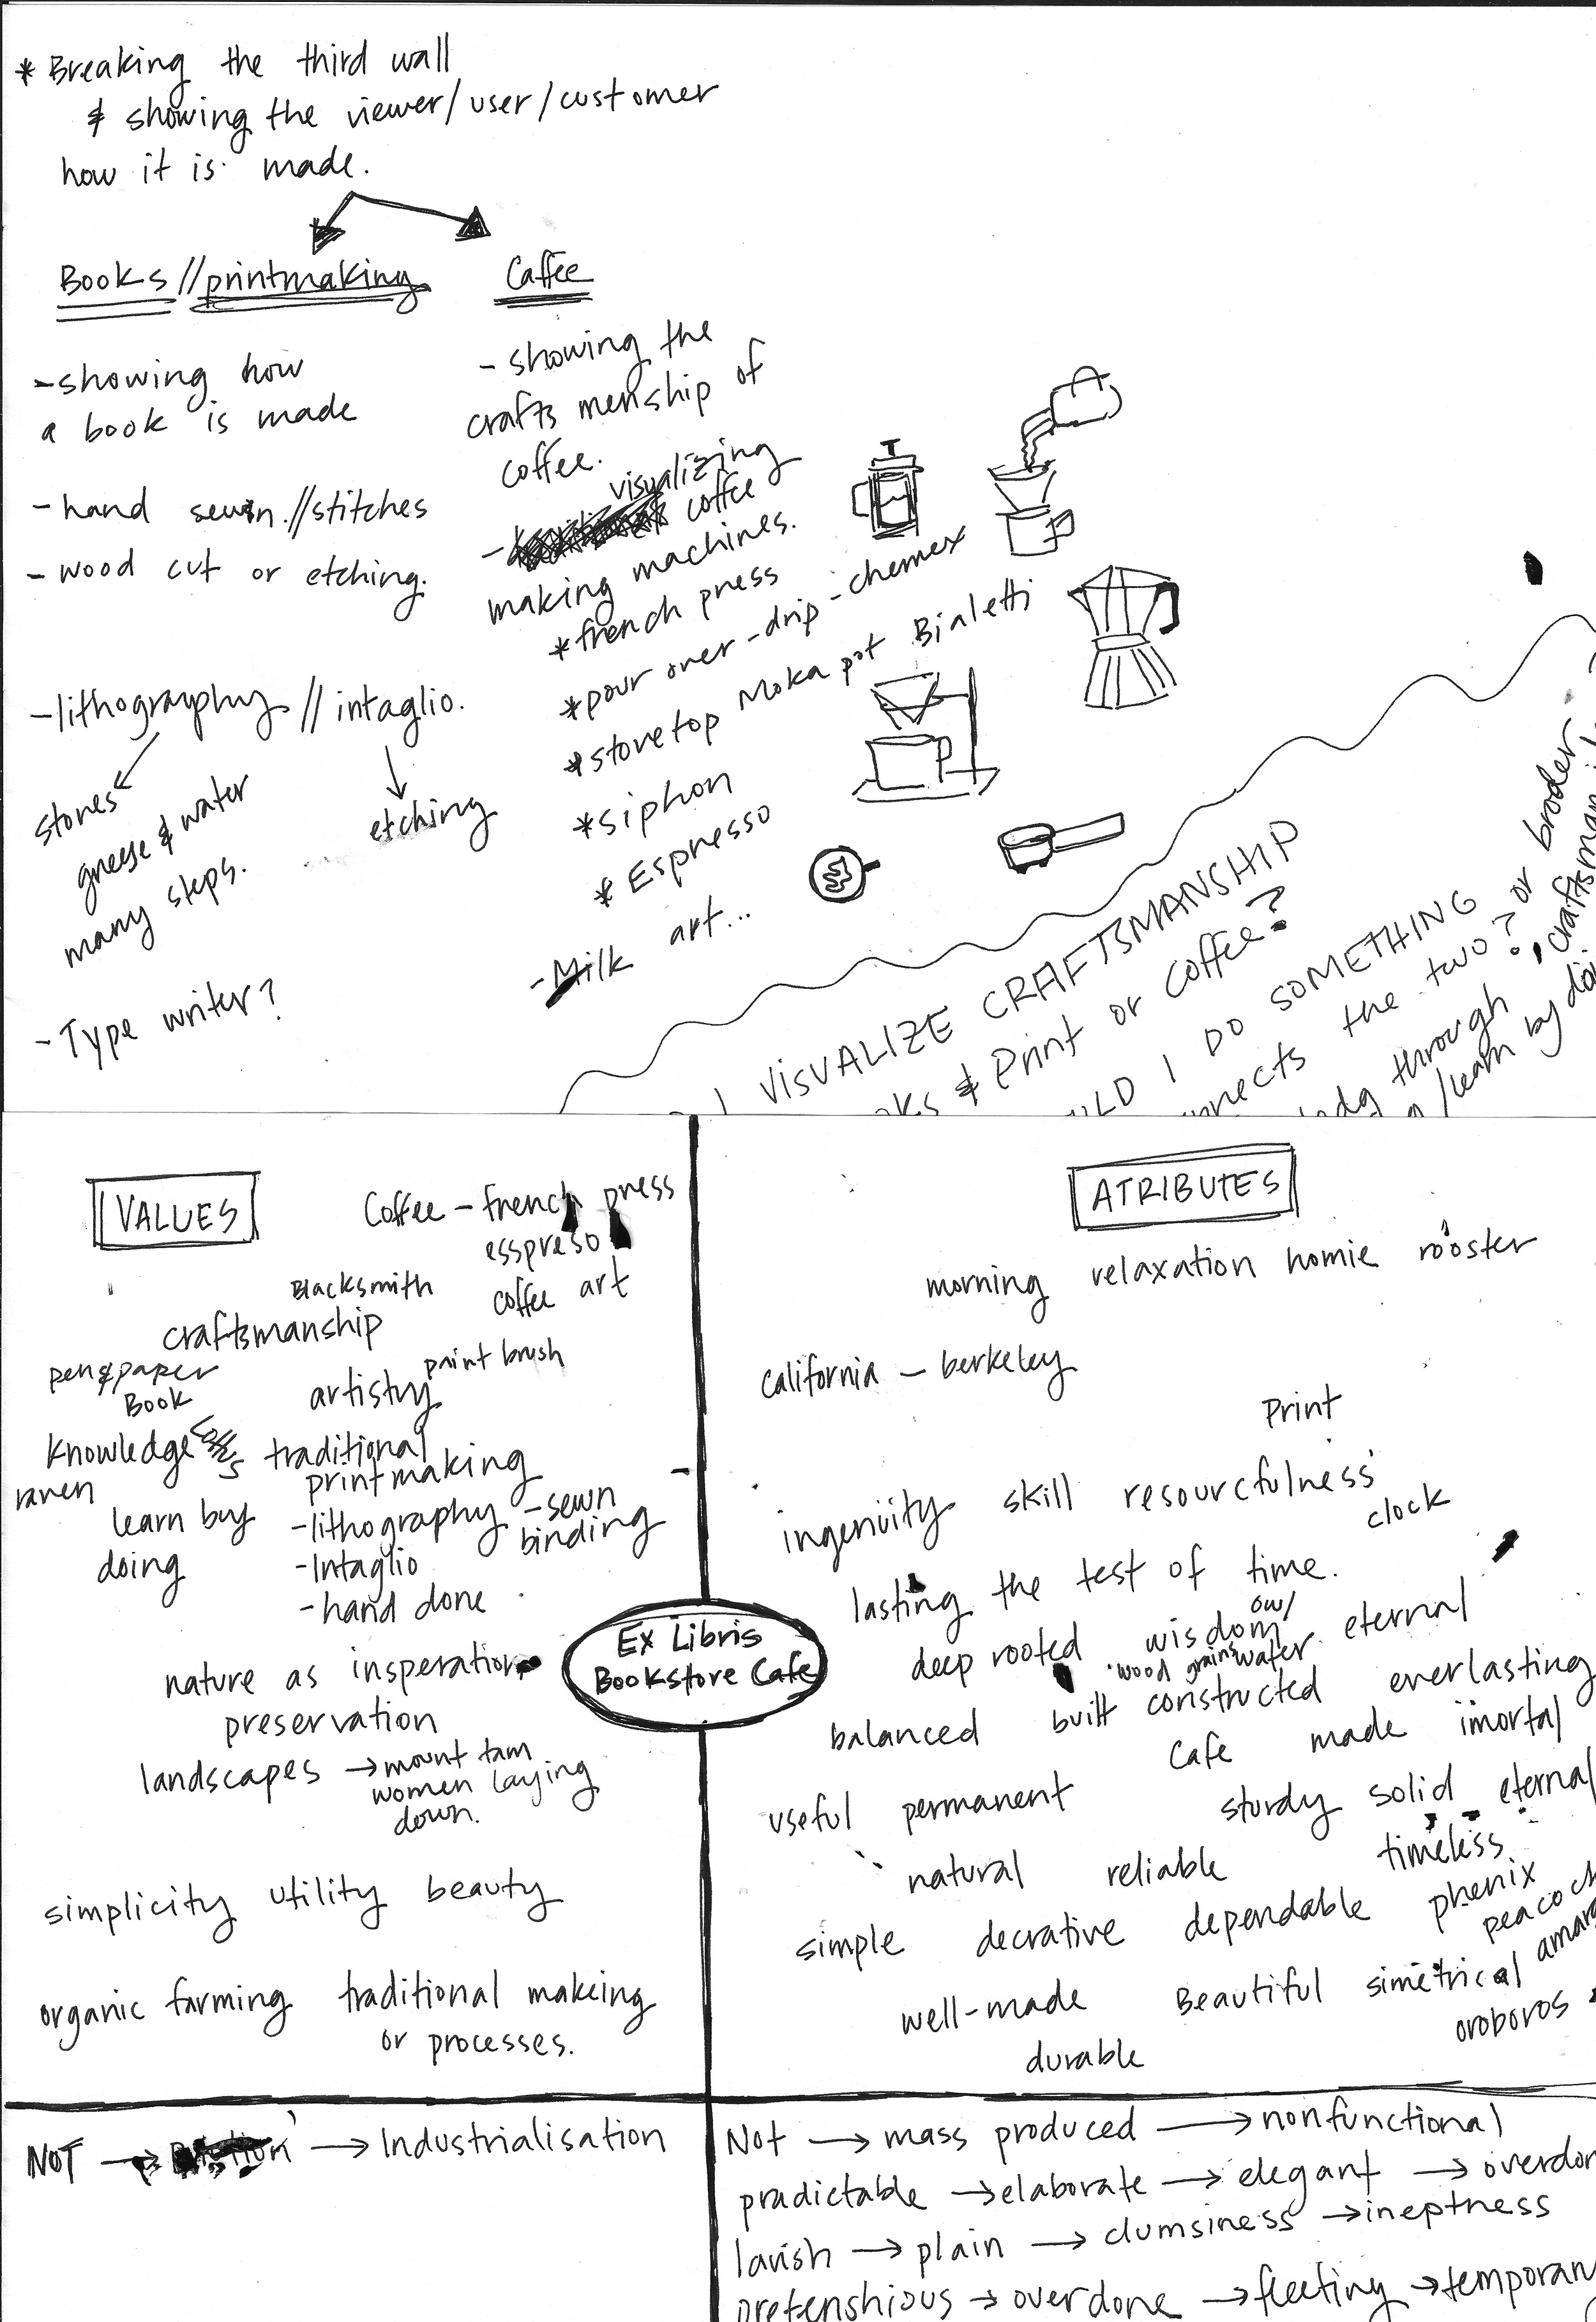 * Breaking the third wall
& showing the viewer/user/customer
how it is made.
Books // printmaking
- showing how
a book is made
- hand sewn // stitches
- wood cut or etching.
- lithography // intaglio.
stones
greese & water
many steps.
etching
- Type writer?
Coffee
- showing the
crafts menship of
coffee.
- visualizing coffee
making machines.
* french press
* pour over - drip - chemex
* stovetop Moka pot Bialetti
* siphon
* Espresso
- Milk art...
I VISUALIZE CRAFTSMANSHIP
& Print or Coffee?
I DO SOMETHING
the two? or broder
through craftsman
/learn by doi
VALUES
Coffee - french press
esspreso
coffee art
Blacksmith
craftsmanship
pen & paper
Book
paint brush
artistry
knowledge
raven
traditional
printmaking
learn buy
doing
- lithography - sewn
binding
- Intaglio
- hand done
nature as insperation
preservation
landscapes → mount tam
women laying
down.
simplicity utility beauty
organic farming traditional makeing
or processes.
Ex Libris
Bookstore Cafe
ATRIBUTES
morning relaxation homie rooster
california - berkeley
Print
ingenuity skill resourcfulness
clock
lasting the test of time.
owl
deep rooted wisdom eternal
wood grain water
balanced built constructed everlasting
Cafe made imortal
useful permanent sturdy solid eternal
natural reliable timeless
simple decrative dependable phenix
peacock
well-made Beautiful simetrical
durable oroboros
NOT → → Industrialisation
Not → mass produced → nonfunctional
pradictable → elaborate → elegant → overdon
lavish → plain → clumsiness → ineptness
pretenshious → overdone → fleeting → temporary